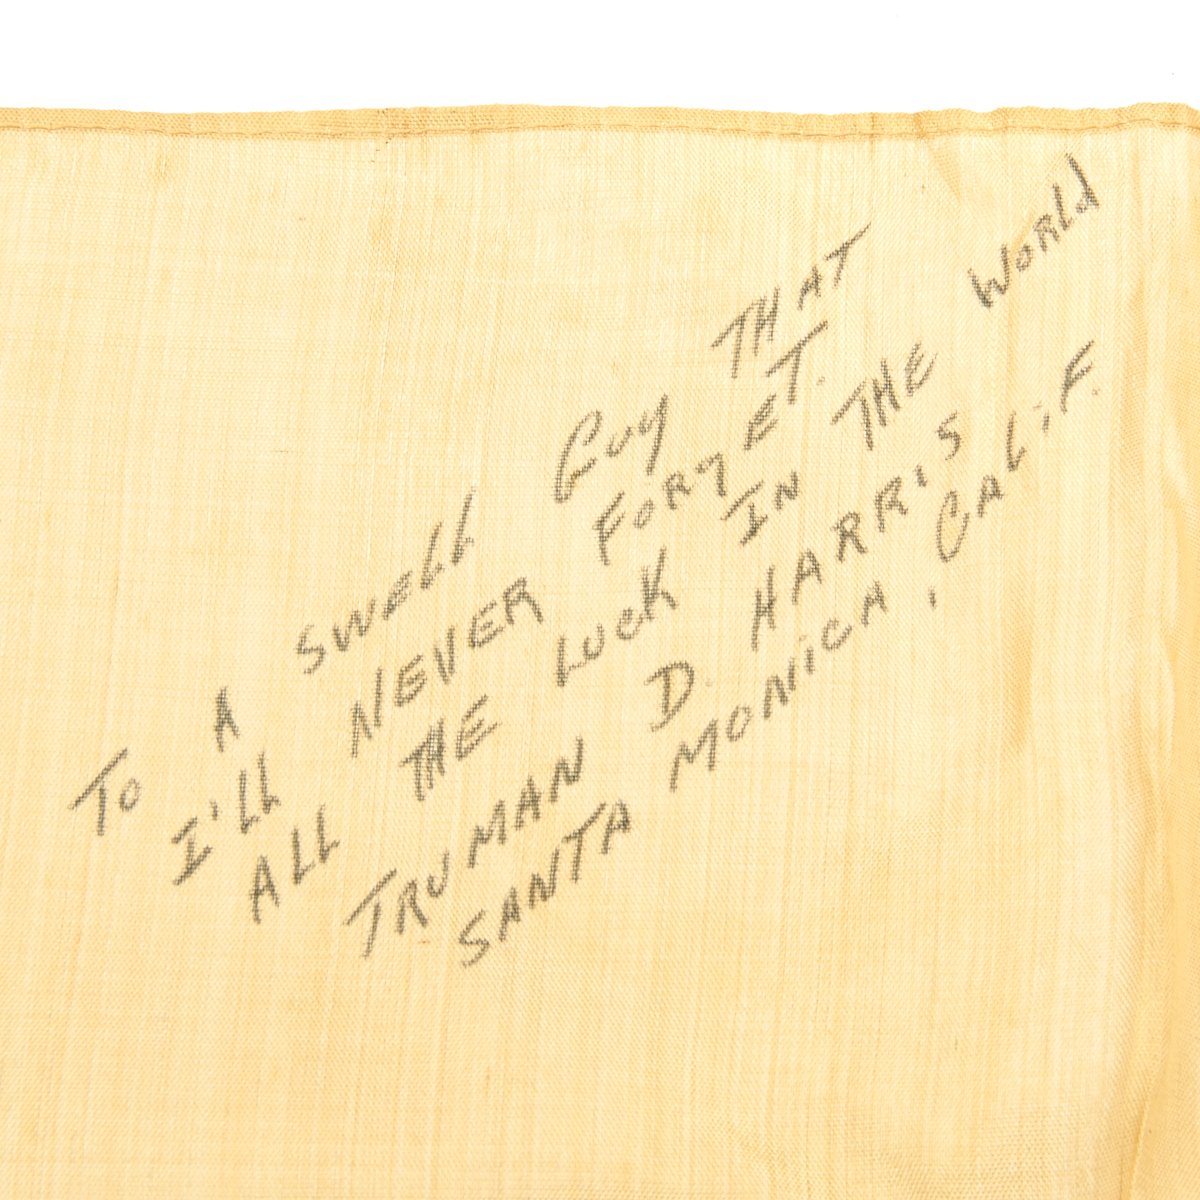 To A SWELL Guy THAT
I'LL NEVER FORgET.
ALL THE LUCK IN THE WORLd
TRUMAN D. HARRIS
SANTA MONiCA, CALiF.